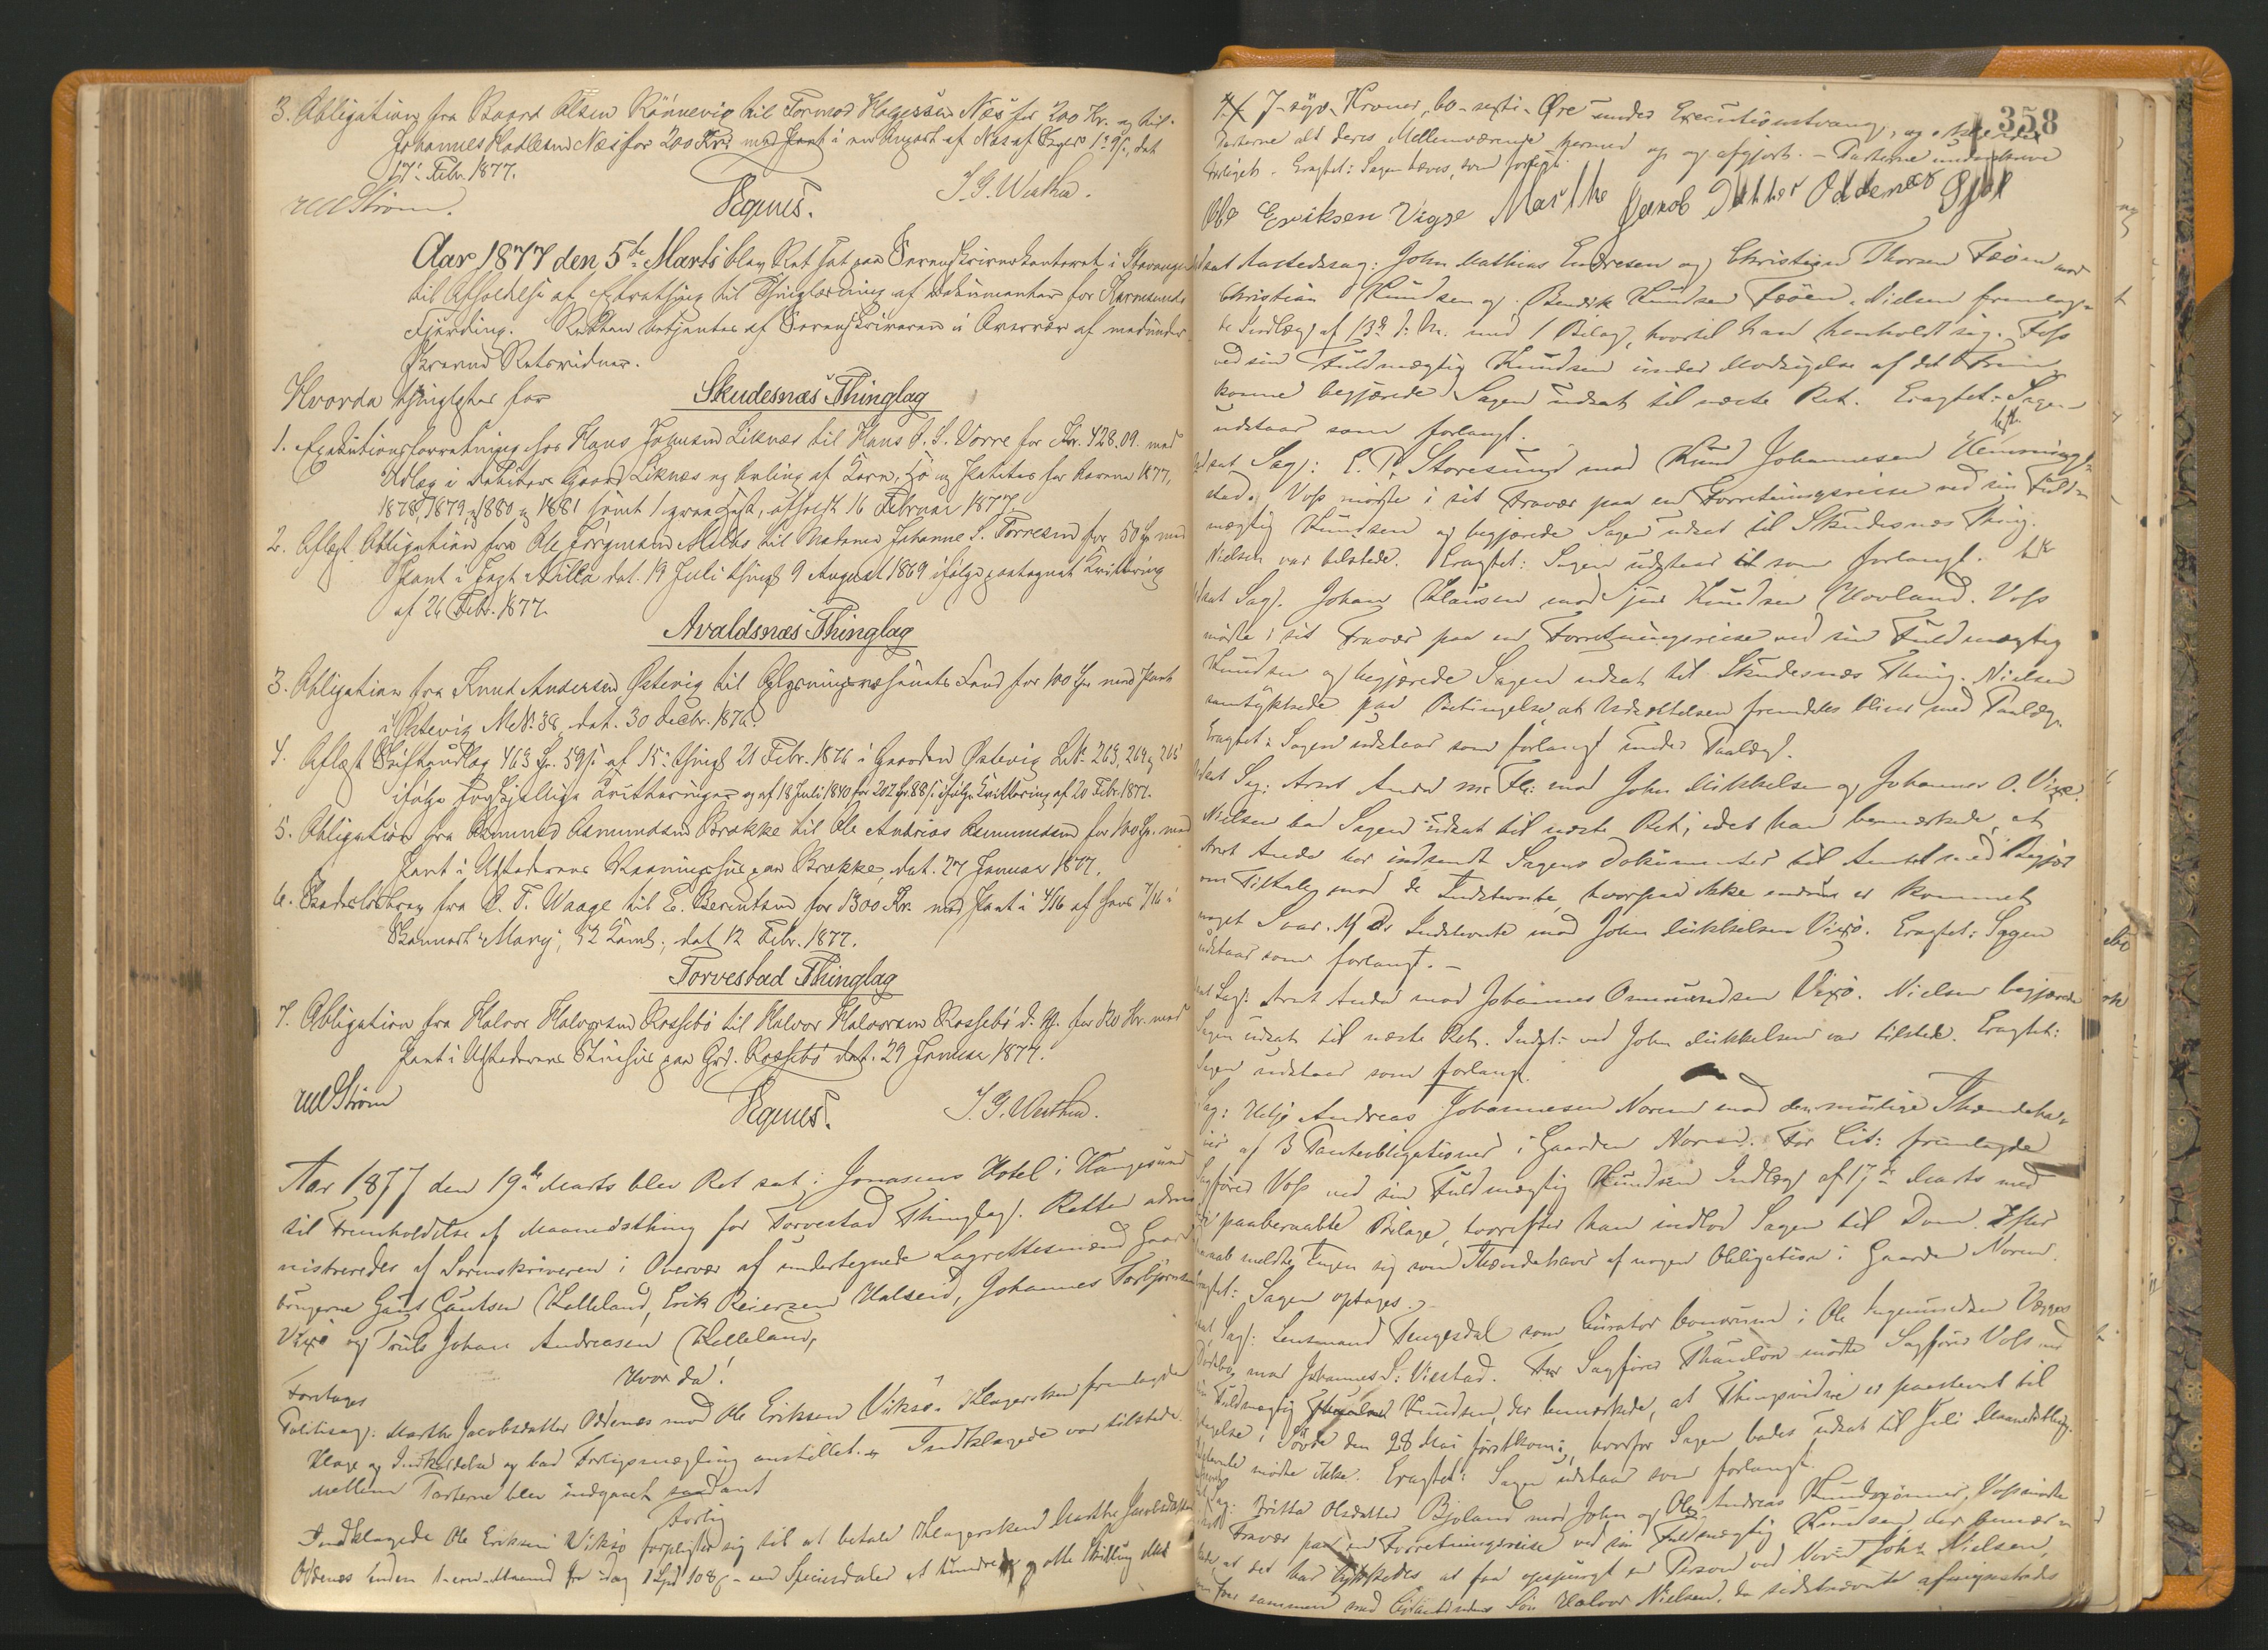 3. Obligation fra Baard Olsen Rønnevig til Tormod Helgesen Næs for 200 Kr. og til
Johannes Næs for 200 Kr. med Pant i en Anpart af Næs af Skyld det
17. Febr. 1877.
Strøm. Vegnes. T. G. Westhu.
Aar 1877 den 5te Marts blev Ret sat paa Sorenskriverkontoret i Stavanger
til Afholdelse af Extrathing til Thinglæsning af Dokumenter for Karmsunds
Fjerding. Retten betjentes af Sorenskriveren i Overvær af medunder-
skrevne Retsvidner.
Hvorda thinglystes for Skudesnæs Thinglag
1. Exekutionsforretning hos Hans Liknæs til Hans S. S. Vorre for Kr. 428.09. med
Udlæg i Debitors Gaard Liknes og Avling af Korn, Hø og Poteter for Aarene 1877,
1878, 1879, 1880 og 1881 samt 1 graa Hest, afholdt 16 Februar 1877.
2. Aflæst Obligation fra Ole Jørgensen til Madame Johanne S. Torresen for 50 med
Pant i Jagt Milla dat. 19 Juli thingl. 9 August 1869 ifølge paategnet Kvittering
af 26 Febr. 1877.
Avaldsnæs Thinglag
3. Obligation fra Knud Andersen Østevig til Oplysningsvæsenets Fond for 100 med Pant
i Østevig M.No. 38, dat. 30 Decbr. 1876.
4. Aflæst 463 59 af 15 thingl. 21 Febr. 1816 i Gaarden Østevig L.No. 263, 264 og 265
ifølge Kvitteringer og af 18 Juli 1840 for 202 88 ifølge Kvittering af 20 Febr. 1877.
5. Obligation fra Asmund Asmundsen Brække til Ole Andreas Asmundsen for 100 med
Pant i Udstederens Vaaningshus paa Brække, dat. 27 Januar 1877.
6. Skadesløsbrev fra T. Waage til E. Berentsen for 1300 Kr. med Pant i 4/16 af hans 7/16 i
"Mary", 52 dat. 12 Febr. 1877.
Torvestad Thinglag
7. Obligation fra Halvor Halvorsen Røssebø til Halvor Halvorsen Røssebø d. y. for Kr. med
Pant i Udstederens paa Grd. Røssebø dat. 29 Januar 1877.
Strøm Vegnes. T. G. Westhu.
Aar 1877 den 19de Marts blev Ret sat i Jonasens Hotel i Haugesund
til Fremholdelse af Maanedsthing for Torvestad Thinglag. Retten admi-
nistreredes af Sorenskriveren i Overvær af undertegnede Lagrettesmænd Gaard-
brugerne Gaut Gautsen Kalleland, Erik Reiersen Halseid, Johannes Torbjørnsen
Vixø og Truls Johan Andreasen Kalleland,
Hvor da!
Foretages
Politisag: Marthe Jacobsdatter Oddenæs mod Ole Eriksen Viksø. Klagersken fremlagde
Klage og Indkaldelse og bad Forligsmægling anstillet. Indklagede var tilstede.
Mellem Parterne blev indgaaet saadant
Forlig
Indklagede Ole Eriksen Viksø forpligter sig til at betale Klagersken Marthe Jacobsdatter
Oddenæs inden 1-een-Maaned fra idag 1 Spd 108 - een Speciedaler et hundrede og otte Skilling eller
358
7-syv-Kroner, 60-sexti-Øre under Executionstvang, og
Parterne alt deres Mellemværende hermed op og afgjort. - Parterne underskrive
Forliget. Eragtet: Sagen hæves, som forligt.
Ole Eriksen Vigse Marthe Jacob Datter Oddenes
Udsat Aastedssag: John Mathias Endresen og Christian Thorsen Fæøen mod
Christian Knudsen og Bendik Knudsen Fæøen. Nielsen fremlag-
de Indlæg af 13de d. M. med 1 Bilag, hvortil han henholdt sig. Foss
ved sin Fuldmægtig Knudsen under Modsigelse af det Frem-
komne begjærede Sagen udsat til næste Ret. Eragtet: Sagen
udstaar som forlangt.
Udsat Sag: E. P. Storesund mod Knud Johannesen Hemmings-
stad. Voss mødte i sit Fravær paa en Forretningsreise ved sin Fuld-
mægtig Knudsen og begjærede Sagen udsat til Skudesnæs Thing.
Nielsen var tilstede. Eragtet: Sagen udstaar som forlangt.
Udsat Sag. Johan Klausen mod Sjur Knudsen Hovland. Voss
mødte i sit Fravær paa en Forretningsreise ved sin Fuldmægtig
Knudsen og begjærede Sagen udsat til Skudesnæs Thing. Nielsen
samtykkede paa Betingelse, at Udsættelsen fremdeles bliver med Paalæg.
Eragtet: Sagen udstaar som forlangt under Paalæg.
Udsat Sag: Arnt Anda m. Fl. mod John Mikkelsen og Johannes O. Vixø.
Nielsen bad Sagen udsat til næste Ret, idet han bemærkede, at
Arnt Anda har indsendt Sagens Dokumenter til Amtet med Begjær
om Tiltale mod de Indstevnte, hvorpaa ikke endnu er kommet
noget Svar. Af de Indstevnte mød John Mikkelsen Vixø. Eragtet: Sagen
udstaar som forlangt. -
Udsat Sag: Arnt Anda mod Johannes Ommundsen Vixø. Nielsen begjærede
Sagen udsat til næste Ret. Indst. ved John Mikkelsen var tilstede. Eragtet:
Sagen udstaar som forlangt.
Sag: Helje Andreas Johannesen Norem mod den mulige Ihændeha-
ver af 3 Panteobligationer i Gaarden Norem. For Cit: fremlagde
Sagfører Voss ved sin Fuldmægtig Knudsen Indlæg af 17de Marts med
paaberaabte Bilage, hvorefter han indlod Sagen til Dom. Efter
Opraab meldte Ingen sig som Ihændehaver af nogen Obligation i Gaarden Norem.
Eragtet: Sagen optages.
Udsat Sag: Lensmand Tengesdal som Curator bonorum i Ole Ingemundsen
Dødsbo mod Johannes S. Viestad. For Sagfører Thaulow mødte Sagfører Voss ved
sin Fuldmægtig Knudsen, der bemærkede, at Thingsvidne er paastevnt til
Optagelse i Søvde den 28 Mai førstkom:, hvorfor Sagen bades udsat til Juli Maanedsthing.
Indstevnte mødte ikke. Eragtet: Sagen udstaar som forlangt.
Sag. Britha Olsdatter Bjoland mod John og Ole Andreas Knudssønner. Voss mødte
Fravær paa en Forretningsreise ved sin Fuldmægtig Knudsen, der bemær-
kede at det har lykkedes at faa opspurgt en Person ved Navn John Nielsen,
sammen med Citantindens Søn Halvor Nielsen, da sidstnævnte